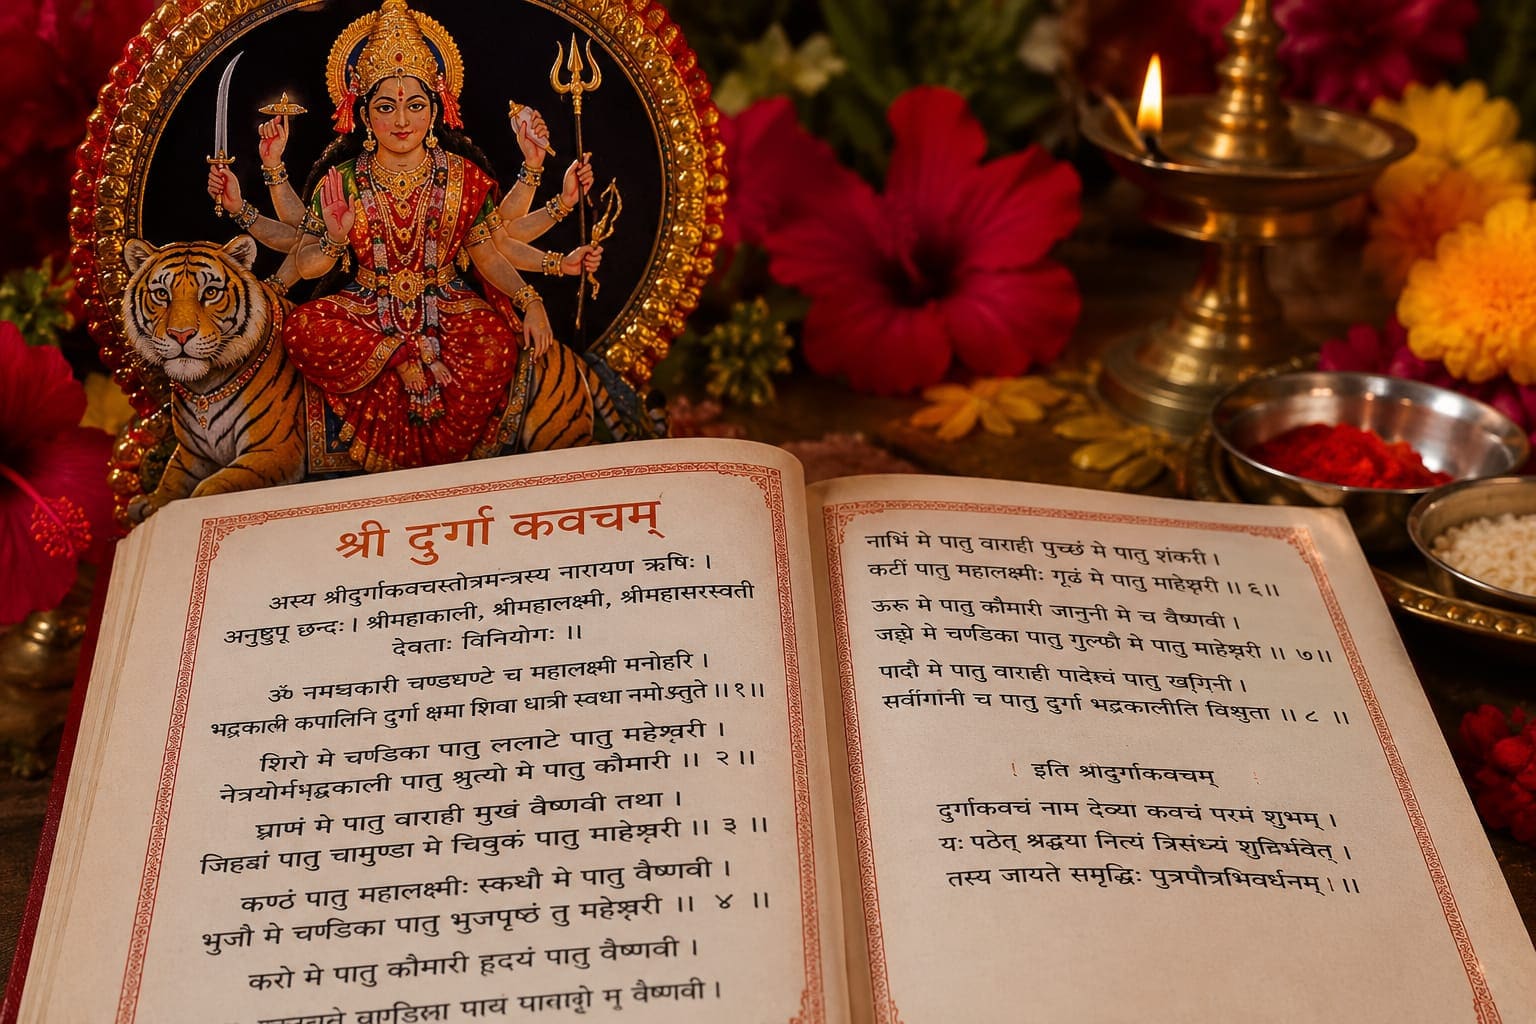 श्री दुर्गा कवचम्
अस्य श्रीदुर्गाकवचस्तोत्रमन्त्रस्य नारायण ऋषिः ।
अनुष्टुपू छन्दः । श्रीमहाकाली, श्रीमहालक्ष्मी, श्रीमहासरस्वती
देवताः विनियोगः ॥
ॐ नमश्चकारी चण्डघण्टे च महालक्ष्मी मनोहरि ।
भद्रकाली कपालिनि दुर्गा क्षमा शिवा धात्री स्वधा नमोऽस्तुते ॥१॥
शिरो मे चण्डिका पातु ललाटे पातु महेश्वरी ।
पातु श्रुत्यो मे पातु कौमारी ॥ २ ॥
घ्राणं मे पातु वाराही मुखं वैष्णवी तथा ।
पातु चामुण्डा मे चिवुकं पातु माहेश्वरी ॥ ३ ॥
कण्ठं पातु महालक्ष्मीः स्कधौ मे पातु वैष्णवी ।
भुजौ मे चण्डिका पातु भुजपृष्ठं तु महेश्वरी ॥ ४ ॥
करो मे पातु कौमारी हृदयं पातु वैष्णवी ।
वैष्णवी ।
नाभिं मे पातु वाराही पुच्छं मे पातु शंकरी ।
कटीं पातु महालक्ष्मीः गृढं मे पातु माहेश्वरी ॥ ६॥
ऊरू मे पातु कौमारी जानुनी मे च वैष्णवी ।
मे चण्डिका पातु गुल्फौ मे पातु माहेश्वरी ॥ ७॥
पादौ मे पातु वाराही पातु
च पातु दुर्गा भद्रकालीति विश्रुता ॥ ८ ॥
इति श्रादुर्गाकवचम्
दुर्गाकवचं नाम देव्या कवचं परमं शुभम् ।
यः पठेत् श्रद्धया नित्यं त्रिसंध्यं
तस्य जायते समृद्धिः पुत्रपौत्रभिवर्धनम् ॥